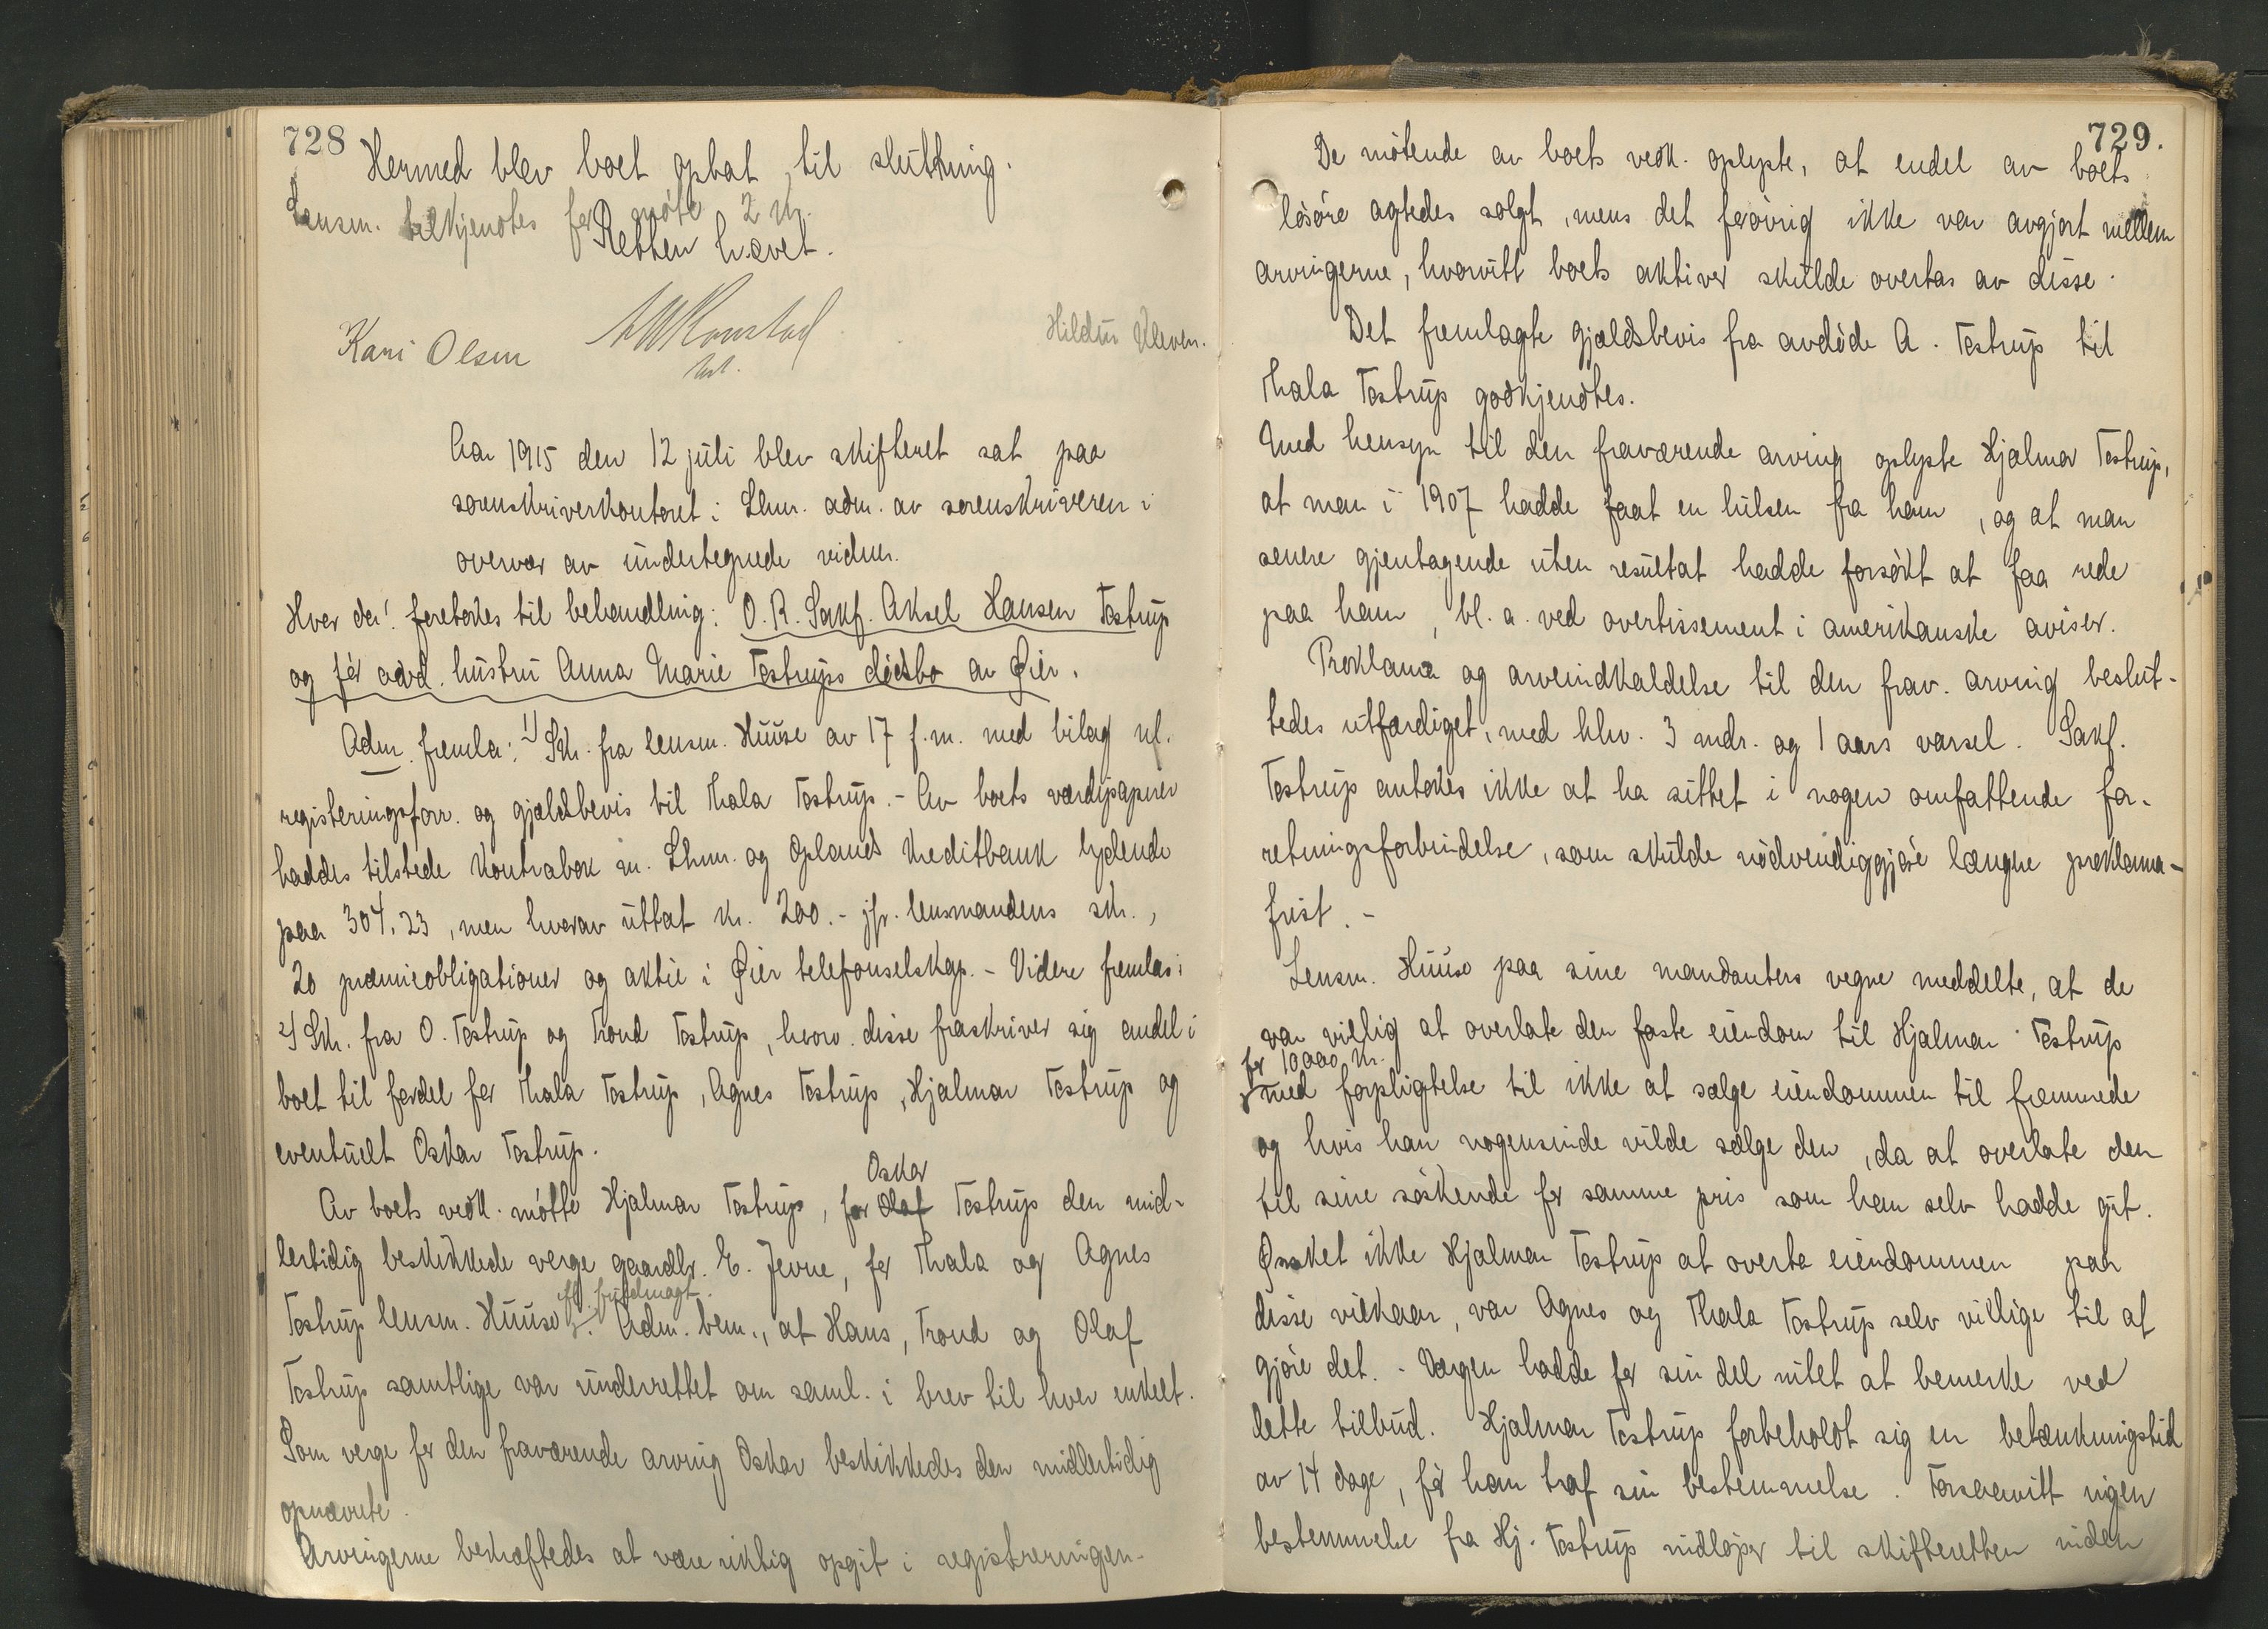 728
Hermed blev boet optat til slutning.
Lensm. tilkjendtes for møte 2 kr.
Retten hævet.
Kari Olsen
Hildur Kleven.
Aar 1915 den 12 juli blev skifteret sat paa
sorenskriverkontoret i Lhmr. adm. av sorenskriveren i
overvær av undertegnede vidner.
Hvor da! foretokes til behandling: O. R. Sakf. Aksel Hansen Tostrup
og før avd. hustru Anna Marie Tostrups dødsbo av Øier.
Adm. fremla: 1) Skr. fra lensm. Huuse av 17 f.m. med bilag nl.
registeringsforr. og gjældsbevis til Thala Tostrup. - Av boets værdipapirer
haddes tilstede kontrabok m. Lhmr. og Oplands Kreditbank lydende
paa 304,23, men hvorav uttat kr. 200.- jfr. lensmandens skr.,
20 præmieobligationer og aktie i Øier telefonselskap. - Videre fremlas:
2) Skr. fra O. Tostrup og Trond Tostrup, hvorv. disse fraskriver sig andel i
boet til fordel for Thala Tostrup, Agnes Tostrup, Hjalmar Tostrup og
eventuelt Oskar Tostrup.
Av boets vedk. møtte Hjalmar Tostrup, for Olaf Oskar Tostrup den mid-
lertidig beskikkede verge gaardbr. E. Jevne, for Thala og Agnes
Tostrup lensm. Huuse efl. fuldmagt. Adm. bem., at Hans, Trond og Olaf
Tostrup samtlige var underrettet om saml. i brev til hver enkelt.
Som verge for den fraværende arving Oskar beskikkedes den midlertidig
opnævnte.
Arvingerne bekræftedes at være riktig opgit i registreringen.
729.
De møtende av boets vedk. oplyste, at endel av boets
løsøre agtedes solgt, mens det forøvrig ikke var avgjort mellem
arvingerne, hvorvitt boets aktiver skulde overtas av disse.
Det fremlagte gjældsbevis fra avdøde A. Tostrup til
Thala Tostrup godkjendtes.
Med hensyn til den fraværende arving oplyste Hjalmar Tostrup,
at man i 1907 hadde faat en hilsen fra ham, og at man
senere gjentagende uten resultat hadde forsøkt at faa rede
paa ham, bl. a. ved avertissement i amerikanske aviser.
Proklama og arveindkaldelse til den frav. arving beslut-
tedes utfærdiget, med hhv. 3 mdr. og 1 aars varsel. Sakf.
Tostrup antokes ikke at ha sittet i nogen omfattende for-
retningsforbindelse, som skulde nødvendiggjøre længre proklama-
frist. -
Lensm. Huuse paa sine mandanters vegne meddelte, at de
var villig at overlate den faste eiendom til Hjalmar Tostrup
for 10000 kr.
med forpligtelse til ikke at sælge eiendommen til fremmede
og hvis han nogensinde vilde sælge den, da at overlate den
til sine søskende for samme pris som han selv hadde git.
Ønsket ikke Hjalmar Tostrup at overta eiendommen paa
disse vilkaar, var Agnes og Thala Tostrup selv villige til at
gjøre det. - Vergen hadde for sin del intet at bemerke ved
dette tilbud. Hjalmar Tostrup forbeholdt sig en betænkningstid
av 14 dage, før han traf sin bestemmelse. Forsaavitt ingen
bestemmelse fra Hj. Tostrup indløper til skifteretten inden